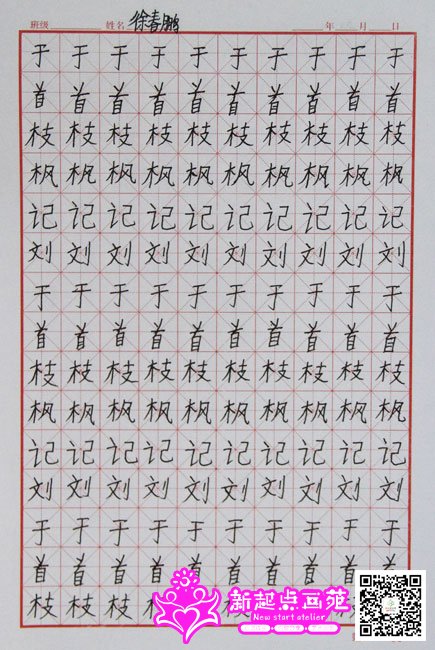 班级 姓名 徐春鹏 年 月 日
于 于 于 于 于 于 于 于 于 于
首 首 首 首 首 首 首 首 首 首
枝 枝 枝 枝 枝 枝 枝 枝 枝 枝
枫 枫 枫 枫 枫 枫 枫 枫 枫 枫
记 记 记 记 记 记 记 记 记 记
刘 刘 刘 刘 刘 刘 刘 刘 刘 刘
于 于 于 于 于 于 于 于 于 于
首 首 首 首 首 首 首 首 首 首
枝 枝 枝 枝 枝 枝 枝 枝 枝 枝
枫 枫 枫 枫 枫 枫 枫 枫 枫 枫
记 记 记 记 记 记 记 记 记 记
刘 刘 刘 刘 刘 刘 刘 刘 刘 刘
于 于 于 于 于 于 于 于 于 于
首 首 首 首 首 首 首 首 首 首
枝 枝 枝
新起点画苑
New start atelier